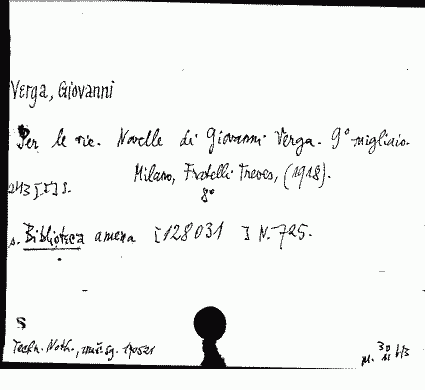 Verga, Giovanni
Per le vie. Novelle di Giovanni Verga. 9° migliaio.
Milano, Fratelli Treves, (1918).
8°
243 [1] S.
s. Biblioteca amena [128031 ] N. 725.
S
Techn. Noth.,